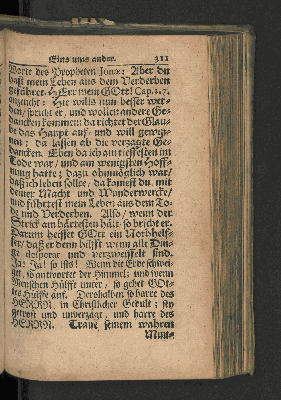 Eins ums ander. 311
Worte des Propheten Jonæ: Aber du
hast mein Leben aus dem Verderben
geführet HErr mein GOtt! Cap. 2. 7.
anzeucht: Hie wills nun besser wer-
den/ spricht er, und wollen andere Ge-
dancken kommen: da richtet der Glau-
be das Haupt auf und will gewin-
nen; da lassen ab die verzagte Ge-
dancken. Eben da ich am tieffesten im
Tode war/ und am wenigsten Hoff-
nung hatte; dazu ohnmöglich war/
daß ich leben solte, da kamest du mit
deiner Macht und Wunderwercke/
und führest mein Leben aus dem To-
de und Verderben. Also/ wenn der
Strick am härtesten hält/ so bricht er.
Darum heisset GOtt ein Nothhelf-
fer/ daß er denn hilfft wenn alle Din-
ge desperat und verzweiffelt sind.
Ja! Ja! so ists! Wenn die Erde schwei-
get, so antwortet der Himmel; und wenn
Menschen Hülffe unter, so gehet GOt-
tes Hülffe auf. Derohalben so harre des
HERRN in Christlicher Gedult; sey
getrost und unverzagt, und harre des
HERRN. Traue seinem wahren
Mun-